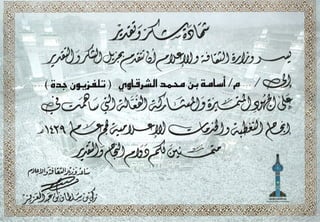 شهادة شكر وتقدير
يسر وزارة الثقافة والإعلام أن تتقدم بجزيل الشكر والتقدير
إلى / م/ أسامة بن محمد الشرقاوي ( تلفزيون جدة )
على الجهود المتميزة والمشاركة الفعالة التي ساهمت في
إنجاح التغطية والخدمات الإعلامية لحج عام ١٤٢٩هـ
متمنين لكم دوام النجاح والتقدير
الثقافة والإعلام
تركي بن سلطان بن عبدالعزيز